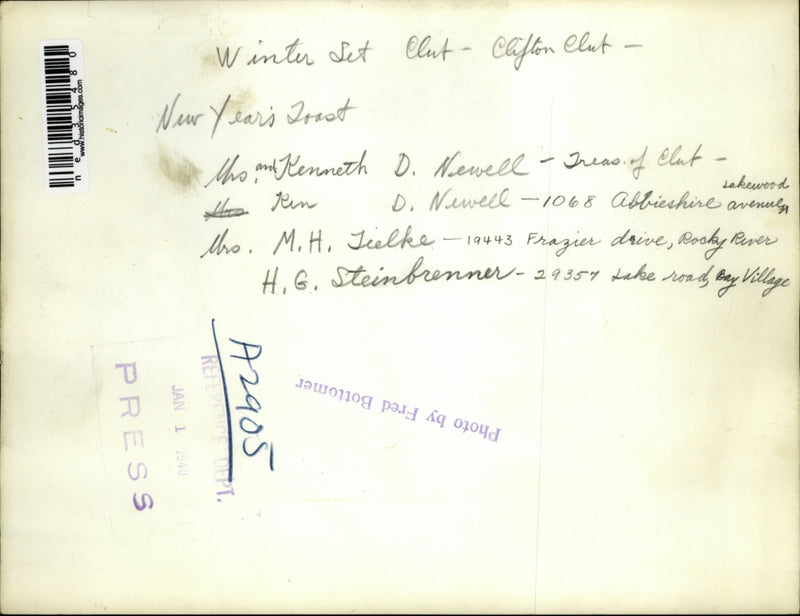 Winter Set Club - Clifton Club -
New Year's Toast
Mrs. and Kenneth D. Newell - Treas. of Club -
Mrs Ken D. Newell - 1068 Abbieshire avenue, Lakewood
Mrs. M. H. Tielke - 19443 Frazier drive, Rocky River
H. G. Steinbrenner - 29357 Lake road, Bay Village
ned35480
www.historicimages.com
A2905
REFERENCE DEPT.
JAN 1 1940
PRESS
Photo by Fred Bottomer